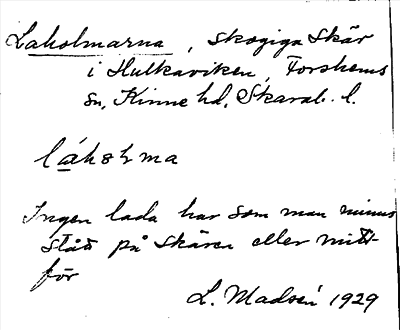 Laholmarna, skogiga skär
i Hulkaviken, Forshems
sn, Kinne hd, Skarab. l.
láholma
Ingen lada har som man minns
stått på skären eller mitt-
för
L. Madsén 1929